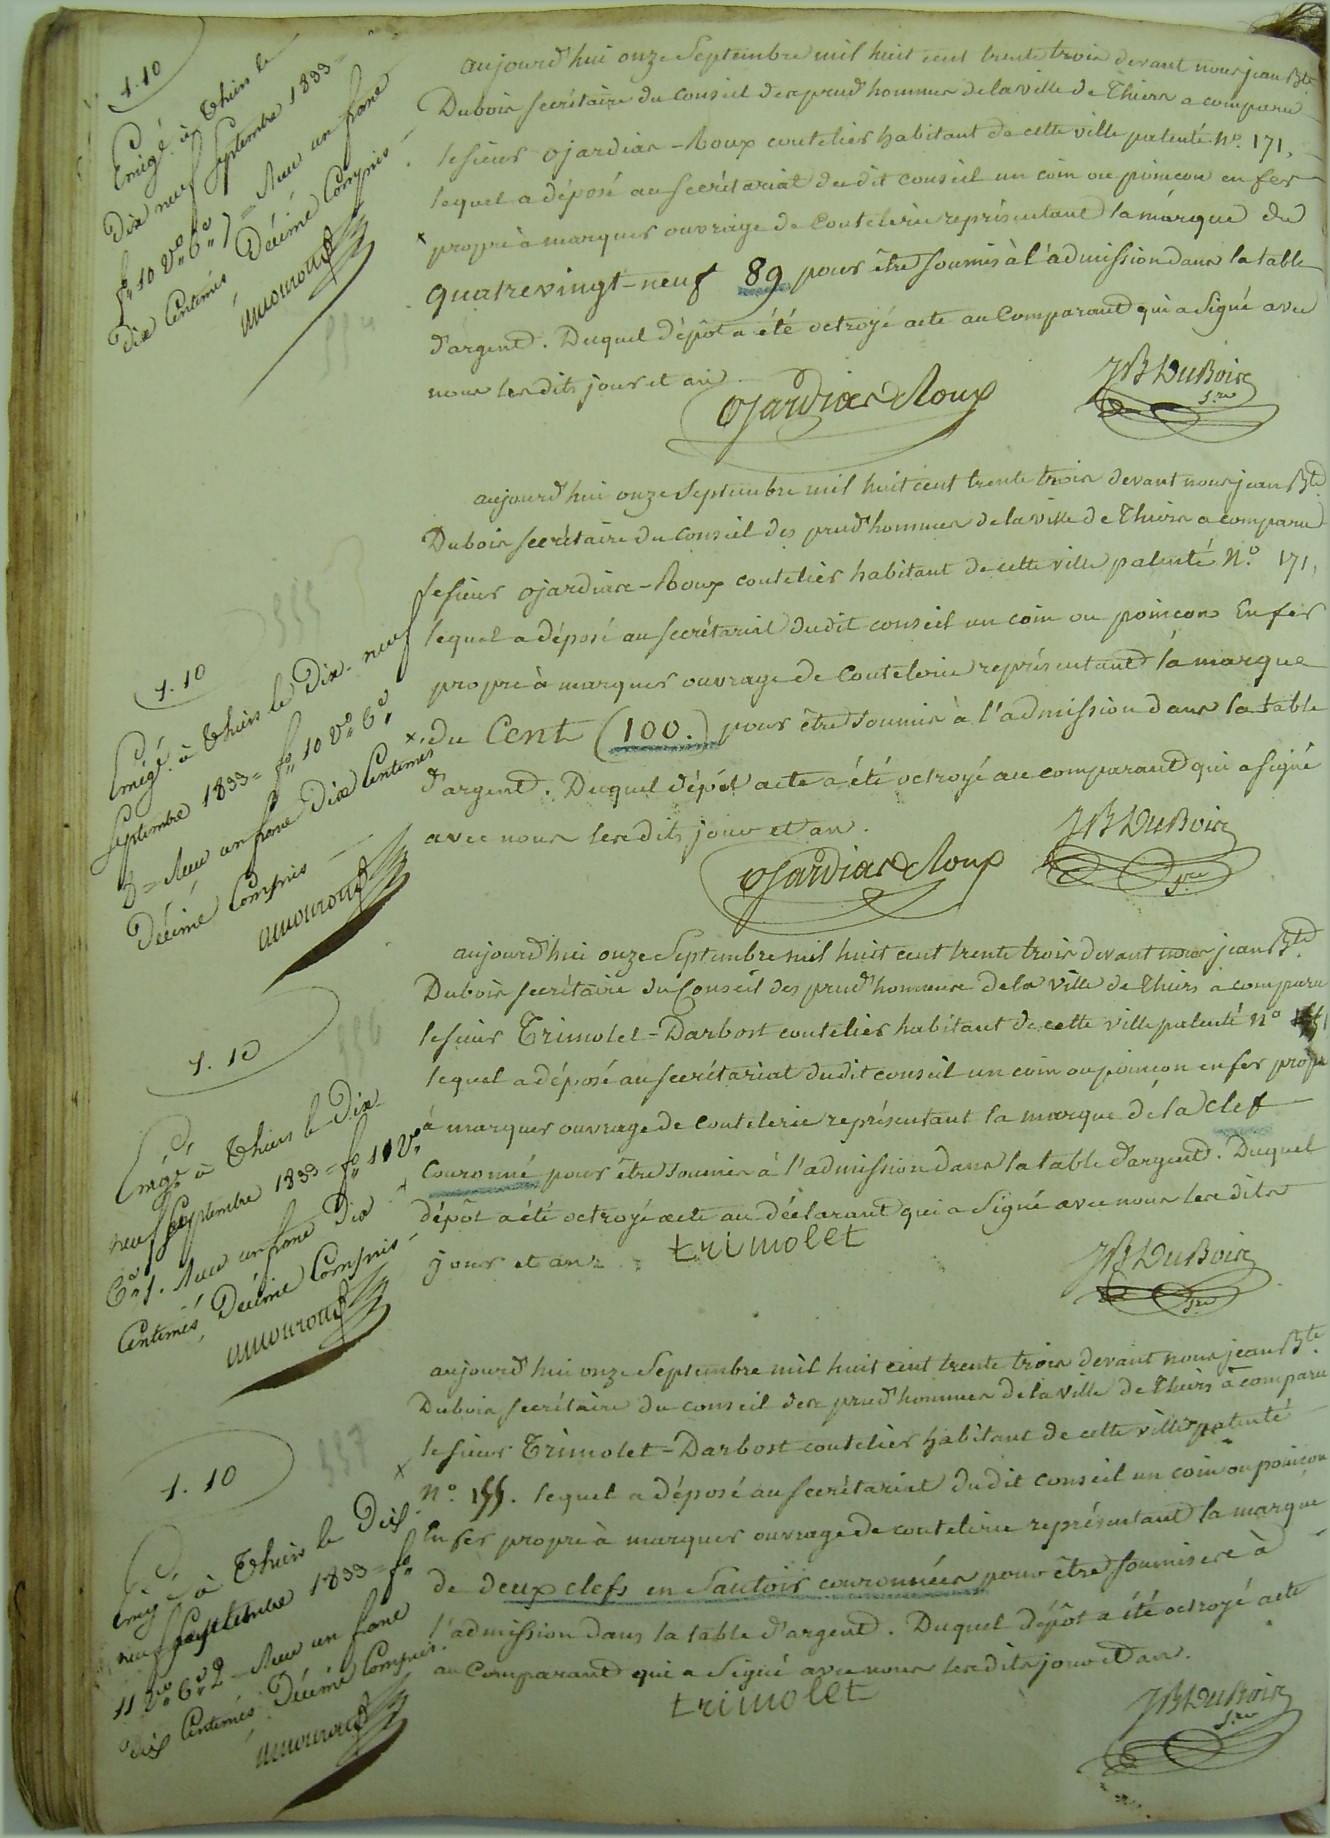 1.10
Enregé à Thiers le
Dix neuf Septembre 1833 =
fo 10 Vo Co 7 = Reçu un franc
Dix Centimes Décime Compris
aujourd'hui onze Septembre mil huit cent trente trois devant nous jean Bte
Dubois secrétaire du Conseil des prud'hommes de la ville de Thiers a comparu
le sieur ojardias-Roux coutelier habitant de cette ville patenté No. 171,
lequel a déposé au secrétariat dudit conseil un coin ou poincon en fer
propre à marquer ouvrage de Coutelerie représentant la marque du
quatrevingt-neuf 89 pour être soumis à l'admission dans la table
d'argent. Duquel dépôt a été octroyé acte au Comparant qui a signé avec
nous lesdits jour et an
ojardias Roux
JB DuBois
S.re
335
1.10
Enregé à Thiers le Dix-neuf
Septembre 1833 = fo 10 Vo Co
8 = Reçu un franc Dix Centimes
Décime Compris
aujourd'hui onze Septembre mil huit cent trente trois devant nous jean Bte
Dubois secrétaire du Conseil des prud'hommes de la ville de Thiers a comparu
le sieur ojardias-Roux coutelier habitant de cette ville patenté No. 171,
lequel a déposé au secrétariat dudit conseil un coin ou poincon En fer
propre à marquer ouvrage de Coutelerie représentant la marque
du Cent (100.) pour être soumis à l'admission dans la table
d'argent. Duquel dépôt acte a été octroyé au comparant qui a signé
avec nous lesdits jour et an.
ojardias Roux
JB DuBois
S.re
336
1.10
Enregé à Thiers le Dix
neuf Septembre 1833 = fo 11 Vo
Co 1. Reçu un franc Dix
Centimes, Décime Compris
aujourd'hui onze Septembre mil huit cent trente trois devant nous jean Bte
Dubois secrétaire du Conseil des prud'hommes de la ville de Thiers a comparu
le sieur Trimolet-Darbost coutelier habitant de cette ville patenté No
lequel a déposé au secrétariat dudit conseil un coin ou poincon en fer propre
à marquer ouvrage de coutelerie représentant la marque de la clef
Couronné pour être soumis à l'admission dans la table d'argent. Duquel
dépôt a été octroyé acte au déclarant qui a signé avec nous lesdits
jour et an.
trimolet
JB DuBois
S.re
337
1.10
Enregé à Thiers le Dix
neuf Septembre 1833 = fo
11 Vo Co 2 = Reçu un franc
Dix Centimes Décime Compris
aujourd'hui onze Septembre mil huit cent trente trois devant nous jean Bte
Dubois secrétaire du conseil des prud'hommes de la ville de Thiers a comparu
le sieur Trimolet-Darbost coutelier habitant de cette ville patenté
No. 155. lequel a déposé au secrétariat dudit conseil un coin ou poincon
En fer propre à marquer ouvrage de coutelerie représentant la marque
de deux clefs en Sautoir couronnées pour être soumise à
l'admission dans la table d'argent. Duquel dépôt a été octroyé acte
au Comparant qui a signé avec nous lesdits jour et an.
trimolet
JB DuBois
S.re